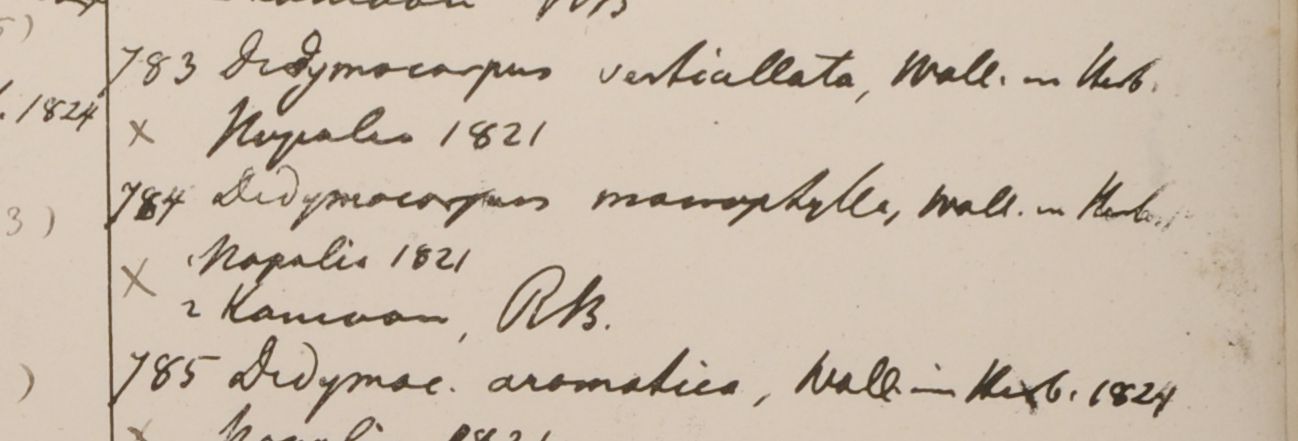 Kamaon RB
783 Didymocarpus verticillata, Wall. in Herb.
1824
× Nepalia 1821
784 Didymocarpus macrophylla, Wall. in Herb.
3)
× Napalia 1821
2 Kamaon, RB.
785 Didymoc. aromatica, Wall in Herb. 1824
)
× Napali 1821